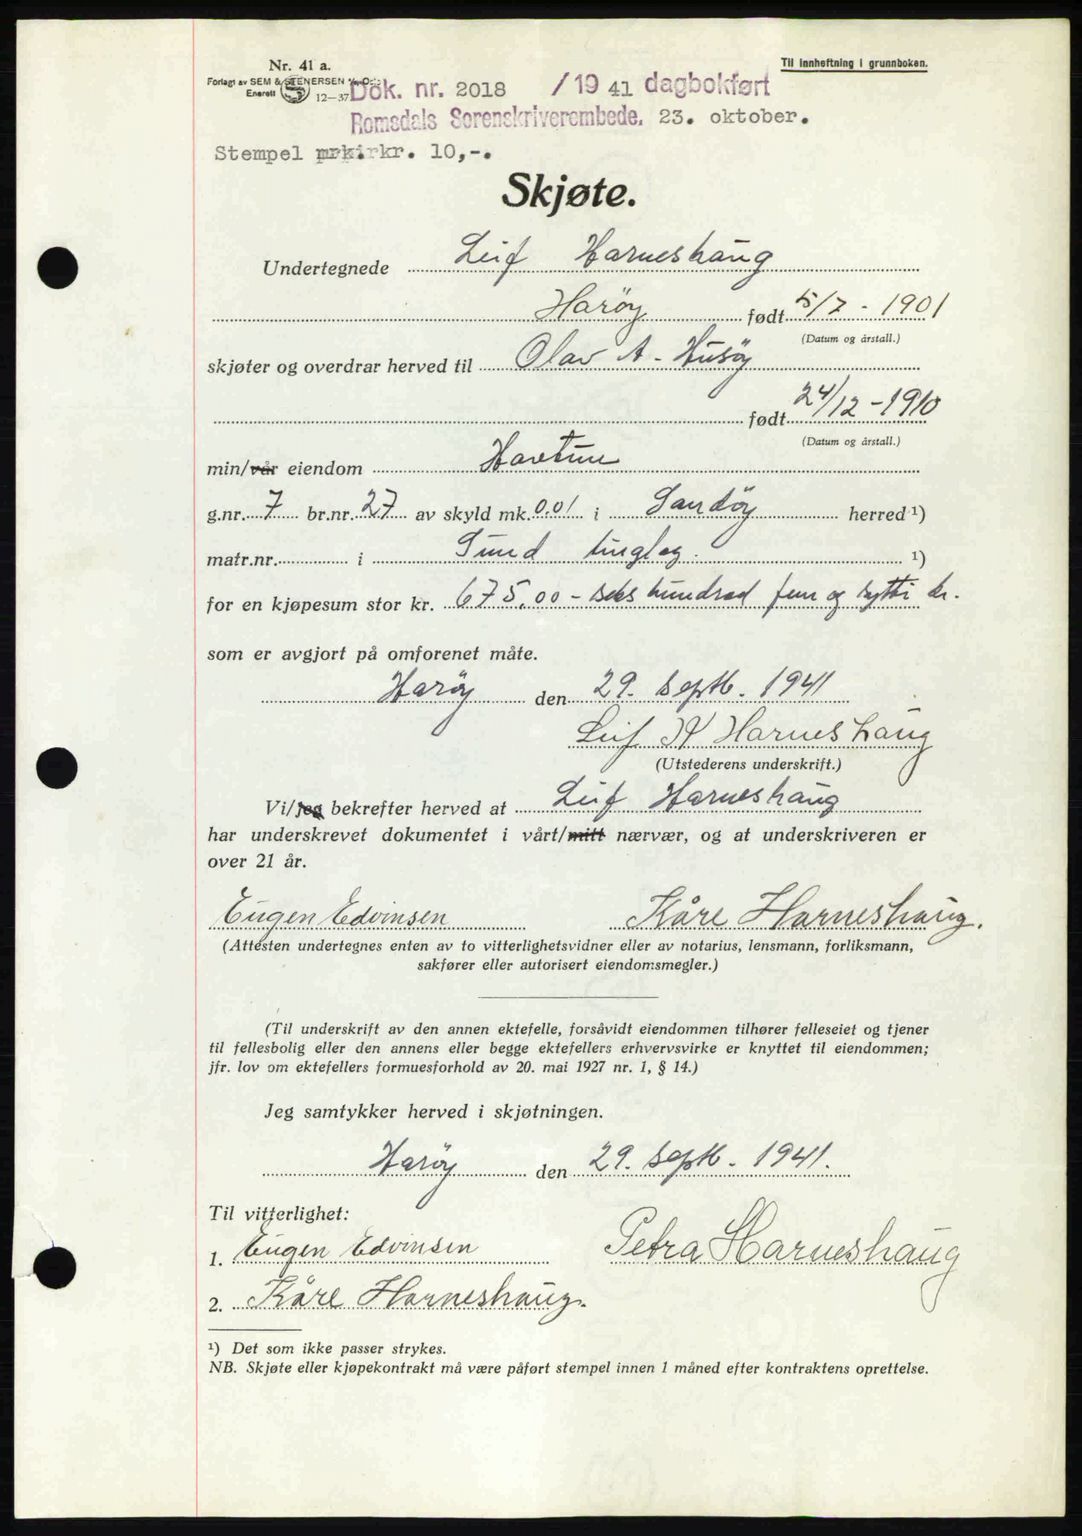 Nr. 41 a.
Til innheftning i grunnboken.
Forlagt av SEM & STENERSEN A/S Oslo
Enerett 12-37
Dok. nr. 2018 /1941 dagbokført
Romsdals Sorenskriverembede. 23. oktober.
Stempel kr. 10,-.
Skjøte.
Undertegnede Leif Harneshaug
Harøy født 5/7 - 1901
(Datum og årstall.)
skjøter og overdrar herved til Olav A. Husøy
født 24/12 - 1910
(Datum og årstall.)
min/vår eiendom Havtun
g.nr. 7 br.nr. 27 av skyld mk. 0.01 i Sandøy herred ¹)
matr.nr. i Sund tinglag. ¹)
for en kjøpesum stor kr. 675,00 - seks hundrad fem og sytti kr.
som er avgjort på omforenet måte.
Harøy den 29. septb. 1941
Leif K Harneshaug
(Utstederens underskrift.)
Vi/jeg bekrefter herved at Leif Harneshaug
har underskrevet dokumentet i vårt/mitt nærvær, og at underskriveren er
over 21 år.
Eugen Edvinsen Kåre Harneshaug.
(Attesten undertegnes enten av to vitterlighetsvidner eller av notarius, lensmann, forliksmann,
sakfører eller autorisert eiendomsmegler.)
(Til underskrift av den annen ektefelle, forsåvidt eiendommen tilhører felleseiet og tjener
til fellesbolig eller den annens eller begge ektefellers erhvervsvirke er knyttet til eiendommen;
jfr. lov om ektefellers formuesforhold av 20. mai 1927 nr. 1, § 14.)
Jeg samtykker herved i skjøtningen.
Harøy den 29. septb. 1941.
Til vitterlighet:
1. Eugen Edvinsen Petra Harneshaug
2. Kåre Harneshaug.
¹) Det som ikke passer strykes.
NB. Skjøte eller kjøpekontrakt må være påført stempel innen 1 måned efter kontraktens oprettelse.